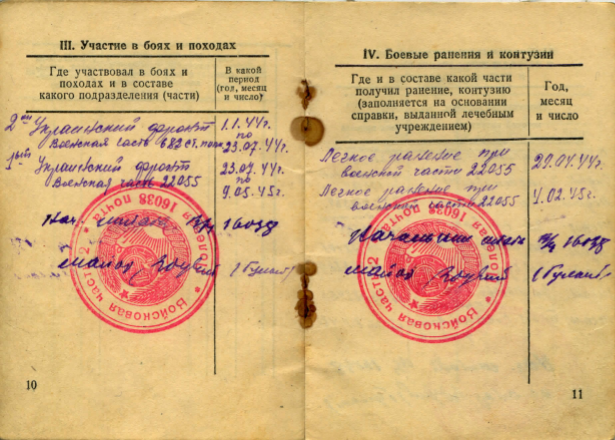 III. Участие в боях и походах
Где участвовал в боях и
походах и в составе
какого подразделения (части)
В какой
период
(год, месяц
и число)
2ой Украинский фронт
Военская часть 682 ст. полк
1.1.44г.
по
23.07.44г.
1ый Украинский фронт
Военская часть 22055
23.07.44г.
по
9.05.45г.
Нач. штаба
майор
Войсковая часть
16038
10
IV. Боевые ранения и контузии
Где и в составе какой части
получил ранение, контузию
(заполняется на основании
справки, выданной лечебным
учреждением)
Год,
месяц
и число
Легкое ранение при
военской части 22055
Легкое ранение при
военской части 22055
4.02.45г.
Начальник штаба
майор
Войсковая часть
16038
11